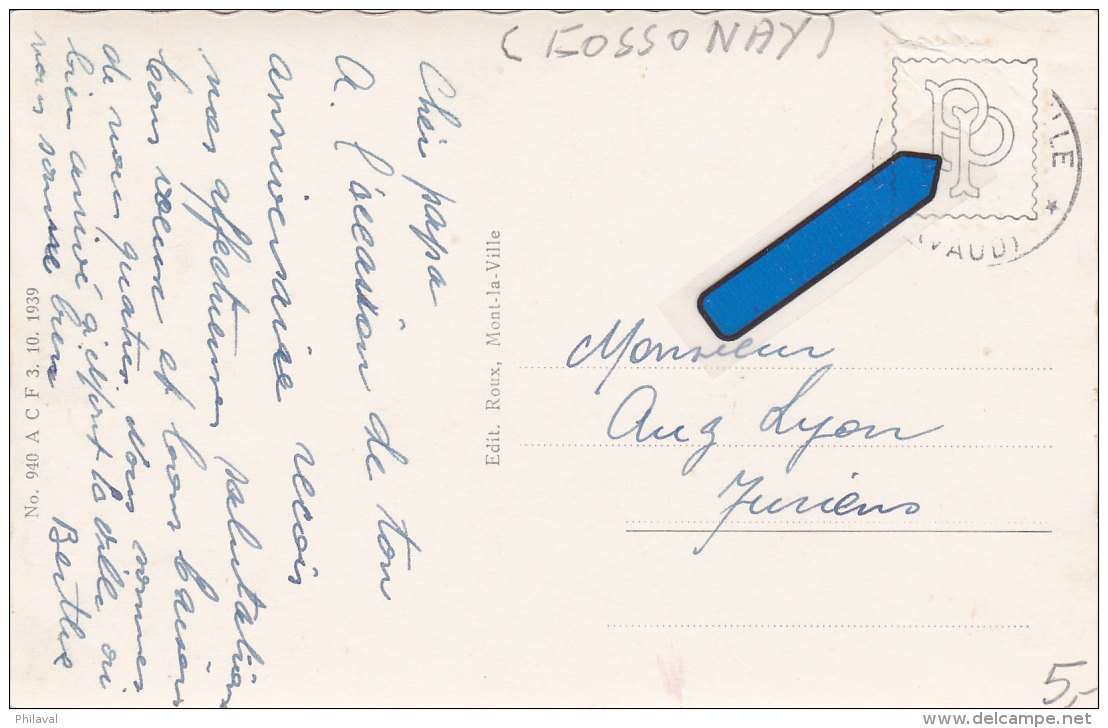 (COSSONAY)
ILLE *
(VAUD)
PP
Cher papa
A l'occasion de ton
anniversaire reçois
nos affectueuses salutations
bons vœux et bons baisers
de nous quatre. Nous sommes
bien arrivé à Mont la ville où
nous somme bien
Berthe
No. 940 A C F 3. 10. 1939
Edit. Roux, Mont-la-Ville
Monsieur
Aug Lyon
Juriens
5,-
Philaval
delcampe.net